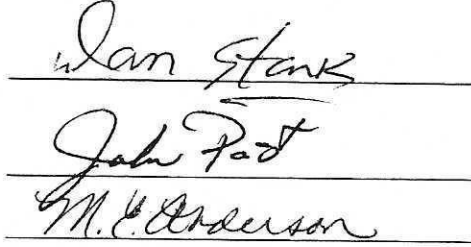 Dan Stark
John
M.E. Anderson